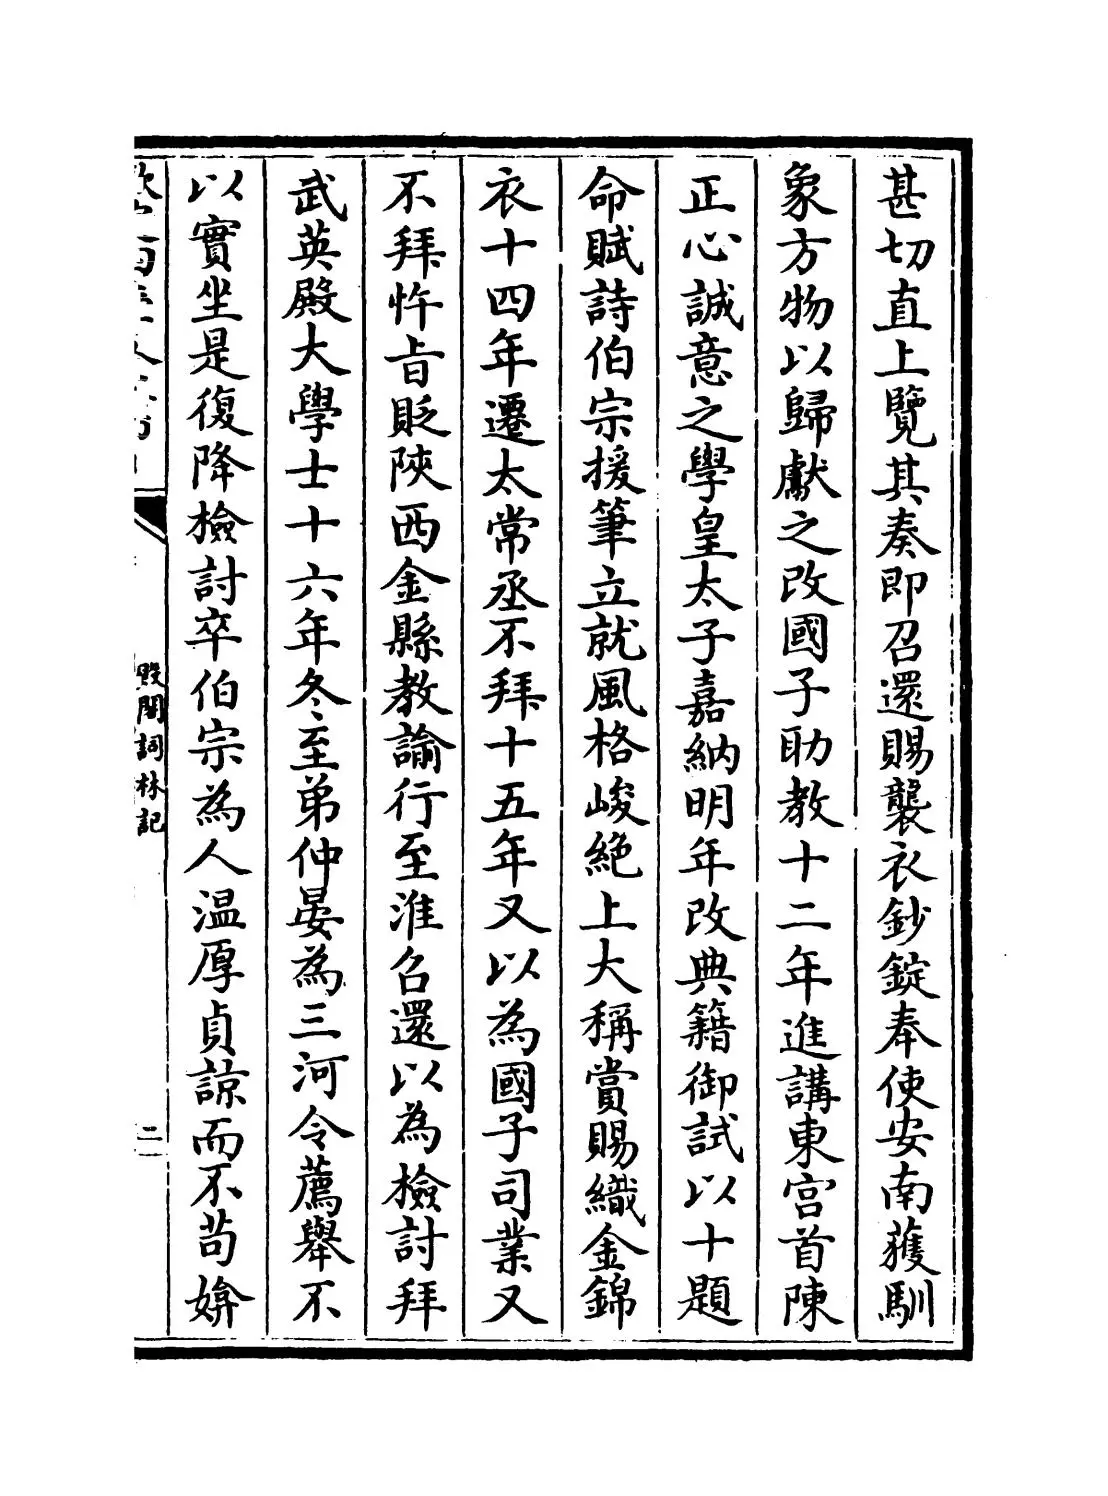 甚切直上覽其奏即召還賜襲衣鈔錠奉使安南獲馴
象方物以歸獻之改國子助教十二年進講東宫首陳
正心誠意之學皇太子嘉納明年改典籍御試以十題
命賦詩伯宗援筆立就風格峻絶上大稱賞賜織金錦
衣十四年遷太常丞不拜十五年又以為國子司業又
不拜忤旨貶陜西金縣教諭行至淮召還以為檢討拜
武英殿大學士十六年冬至弟仲晏為三河令薦舉不
以實坐是復降檢討卒伯宗為人温厚貞諒而不苟媕
殿閣詞林記
二